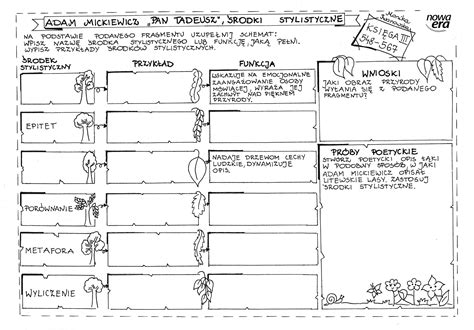 ADAM MICKIEWICZ „PAN TADEUSZ”, ŚRODKI STYLISTYCZNE
NA PODSTAWIE PODANEGO FRAGMENTU UZUPEŁNIJ SCHEMAT:
WPISZ NAZWĘ ŚRODKA STYLISTYCZNEGO LUB FUNKCJĘ, JAKĄ PEŁNI.
WPISZ PRZYKŁADY ŚRODKÓW STYLISTYCZNYCH.
KSIĘGA III
548-567
nowa
era
ŚRODEK
STYLISTYCZNY
PRZYKŁAD
FUNKCJA
WSKAZUJE NA EMOCJONALNE
ZAANGAŻOWANIE OSOBY
MÓWIĄCEJ, WYRAŻA JEJ
ZACHWYT NAD PIĘKNEM
PRZYRODY.
EPITET
NADAJE DRZEWOM CECHY
LUDZKIE, DYNAMIZUJE
OPIS.
PORÓWNANIE
METAFORA
WYLICZENIE
WNIOSKI
JAKI OBRAZ PRZYRODY
WYŁANIA SIĘ Z PODANEGO
FRAGMENTU?
PRÓBY POETYCKIE
STWÓRZ POETYCKI OPIS ŁĄKI
W PODOBNY SPOSÓB, W JAKI
ADAM MICKIEWICZ OPISAŁ
LITEWSKIE LASY, ZASTOSUJ
ŚRODKI STYLISTYCZNE.